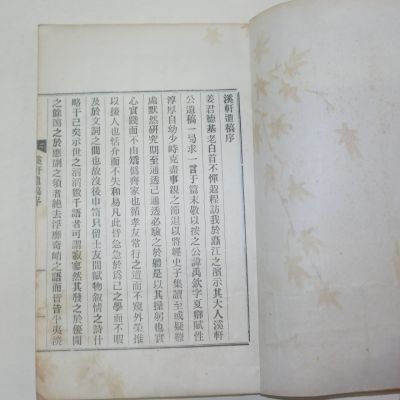 溪軒遺稿序
姜君德基老白首不憚逈程訪我於聶江之濱示其大人溪軒
公遺稿一弓求一言于篇末敬以按之公諱禹欽字夏卿賦性
淳厚自幼少時克盡事親之節退以將經史子集讀至或疑難
處默然研究期至通透已通透必驗之於體是以其操躬也實
心實踐而不由矯僞齊家也循孝友常行之道而不窺外榮推
以接人也恬介而不失和易凡此皆急急於爲己之學而不暇
及於文詞之間也故沒後巾笥只留士友間賦物叙情之詩什
略干已矣示世之滔滔數千語者可謂寂寥然其發之於優閒
之餘瀉之於應酬之頃者絶去浮靡奇峭之語而皆皆平夷淡
溪軒遺稿序